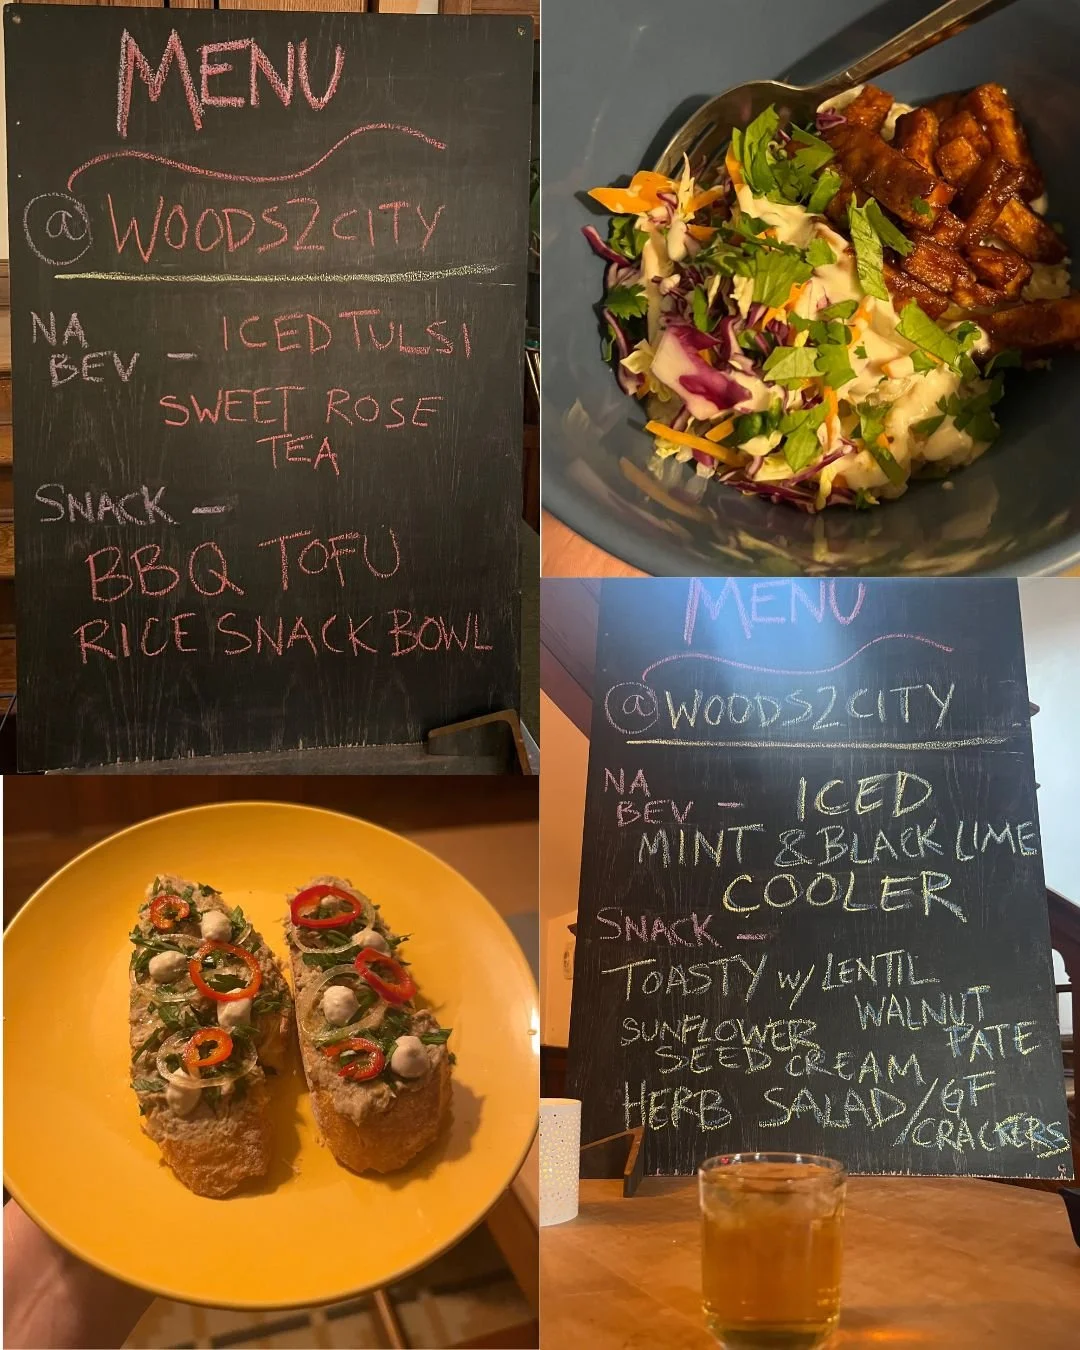 MENU
@WOODS2CITY
NA
BEV - ICED TULSI
SWEET ROSE
TEA
SNACK -
BBQ TOFU
RICE SNACK BOWL
MENU
@WOODS2CITY
NA
BEV - ICED
MINT & BLACK LIME
COOLER
SNACK -
TOASTY w/ LENTIL
WALNUT
SUNFLOWER PATE
SEED CREAM
HERB SALAD/GF
CRACKERS